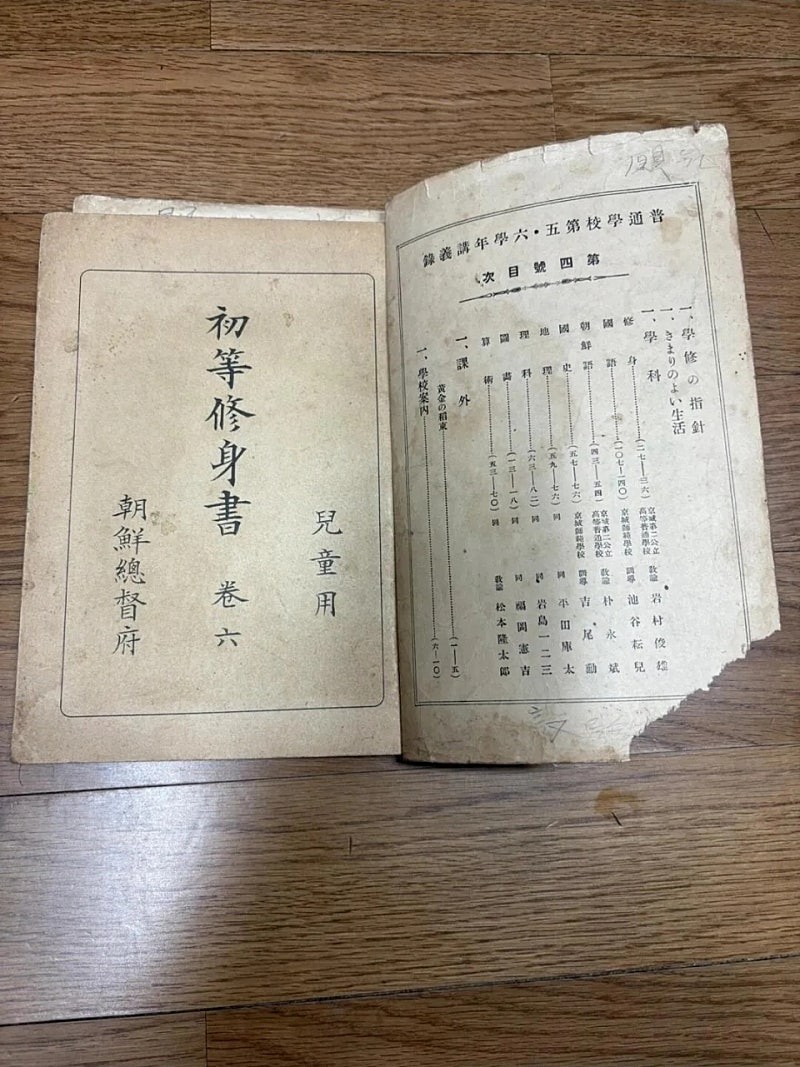 兒童用
初等修身書 卷六
朝鮮總督府
普通學校第五・六學年講義錄
第四號目次
一、學修の指針
一、きまりのよい生活
一、學科
修身……(二七—三六) 京城第二公立高等普通學校 教諭 岩村俊雄
國語……(一〇七—一四〇) 京城師範學校 訓導 池谷耘兒
朝鮮語……(四三—五四) 京城第二公立高等普通學校 教諭 朴永斌
國史……(五七—七六) 京城師範學校 訓導 吉尾勳
地理……(五九—七六) 同 同 平田庫太
理科……(六三—八二) 同 同 岩島一二三
圖畫……(一三—一八) 同 同 福岡憲吉
算術……(五三—七〇) 同 教諭 松本隆太郎
一、課外
黃金の稻束……(一—五)
一、學校案內……(六—一〇)